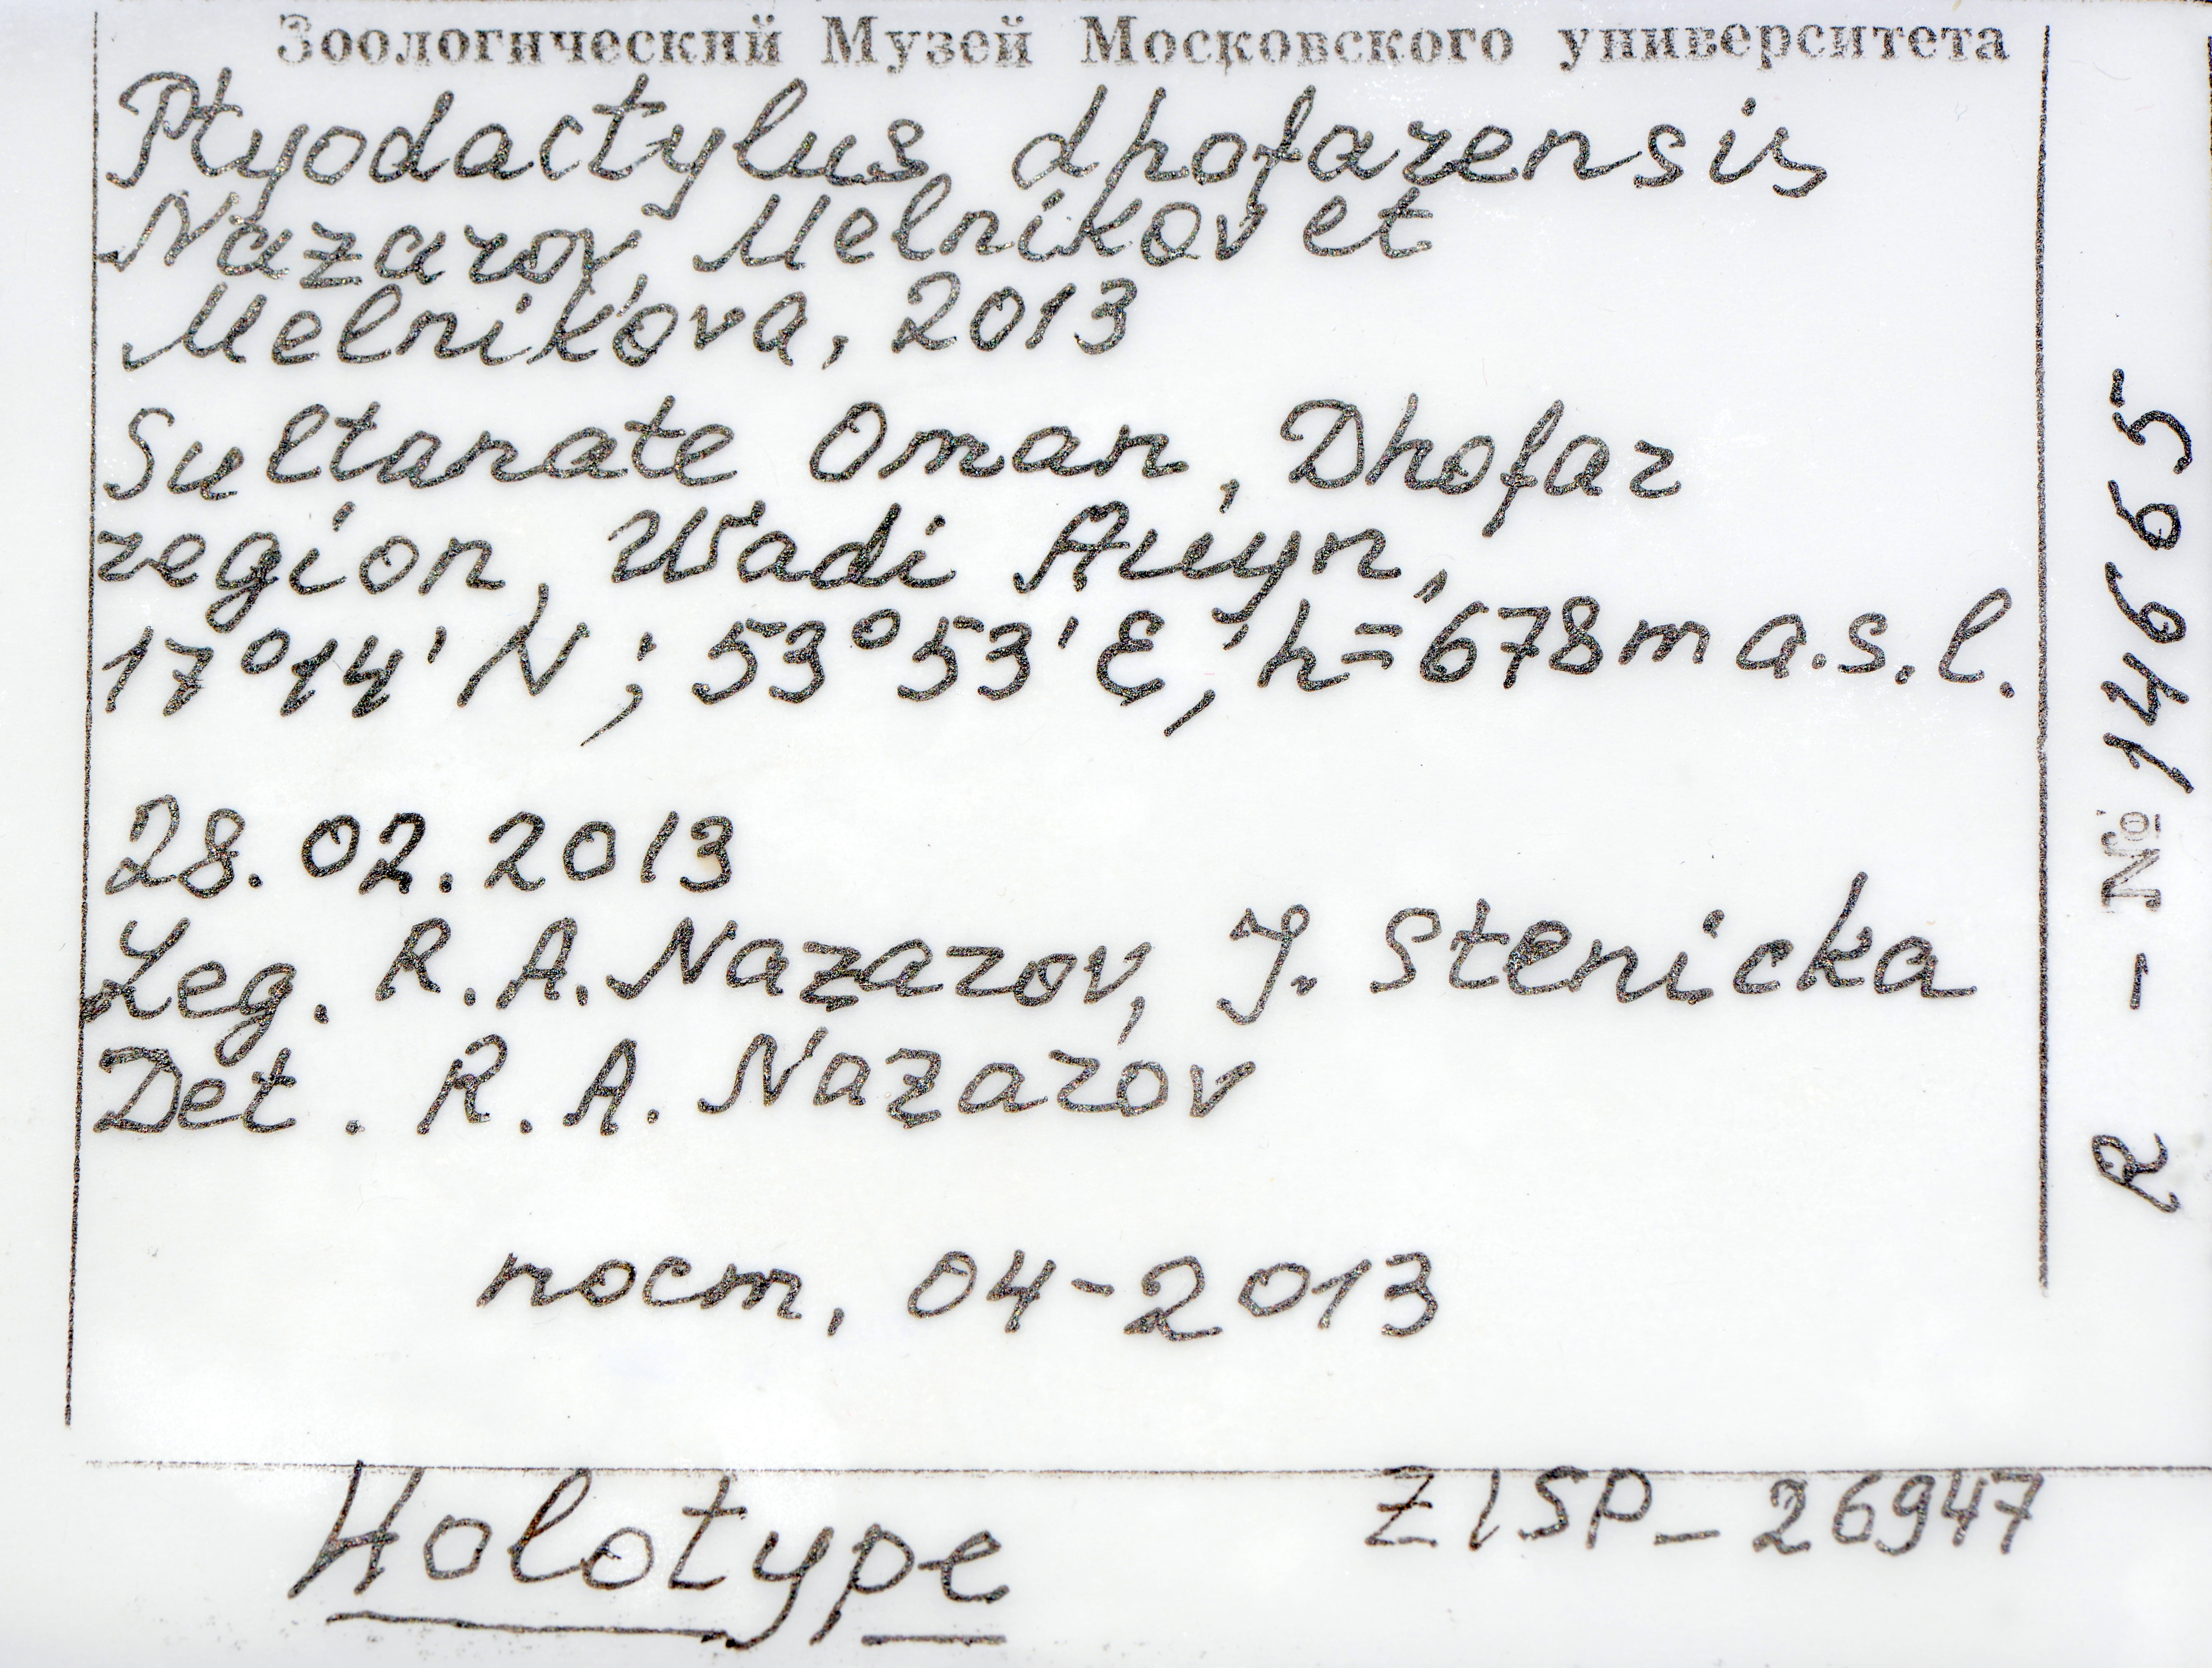 Зоологический Музей Московского университета
Ptyodactylus dhofarensis
Nazarov, Melnikov et
Melnikova, 2013
Sultanate Oman, Dhofar
region, Wadi Aiiyn,
17°14' N; 53°53' E, h=678m a.s.l.
28.02.2013
Leg. R.A.Nazarov, J. Stenicka
Det. R.A. Nazarov
пост, 04-2013
Holotype
ZISP_26947
R - № 14665